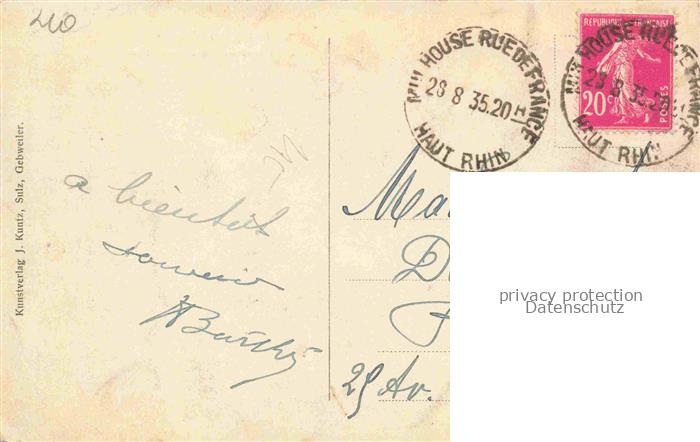 210
MULHOUSE RUE DE FRANCE
28 8 35.20 H
HAUT RHIN
REPUBLIQUE FRANÇAISE
20 c
POSTES
MULHOUSE RUE DE FRANCE
28 8 35.20 H
HAUT RHIN
Kunstverlag J. Kuntz, Sulz, Gebweiler.
a bientôt
souvenir
Ma
D
29 Av.
privacy protection
Datenschutz